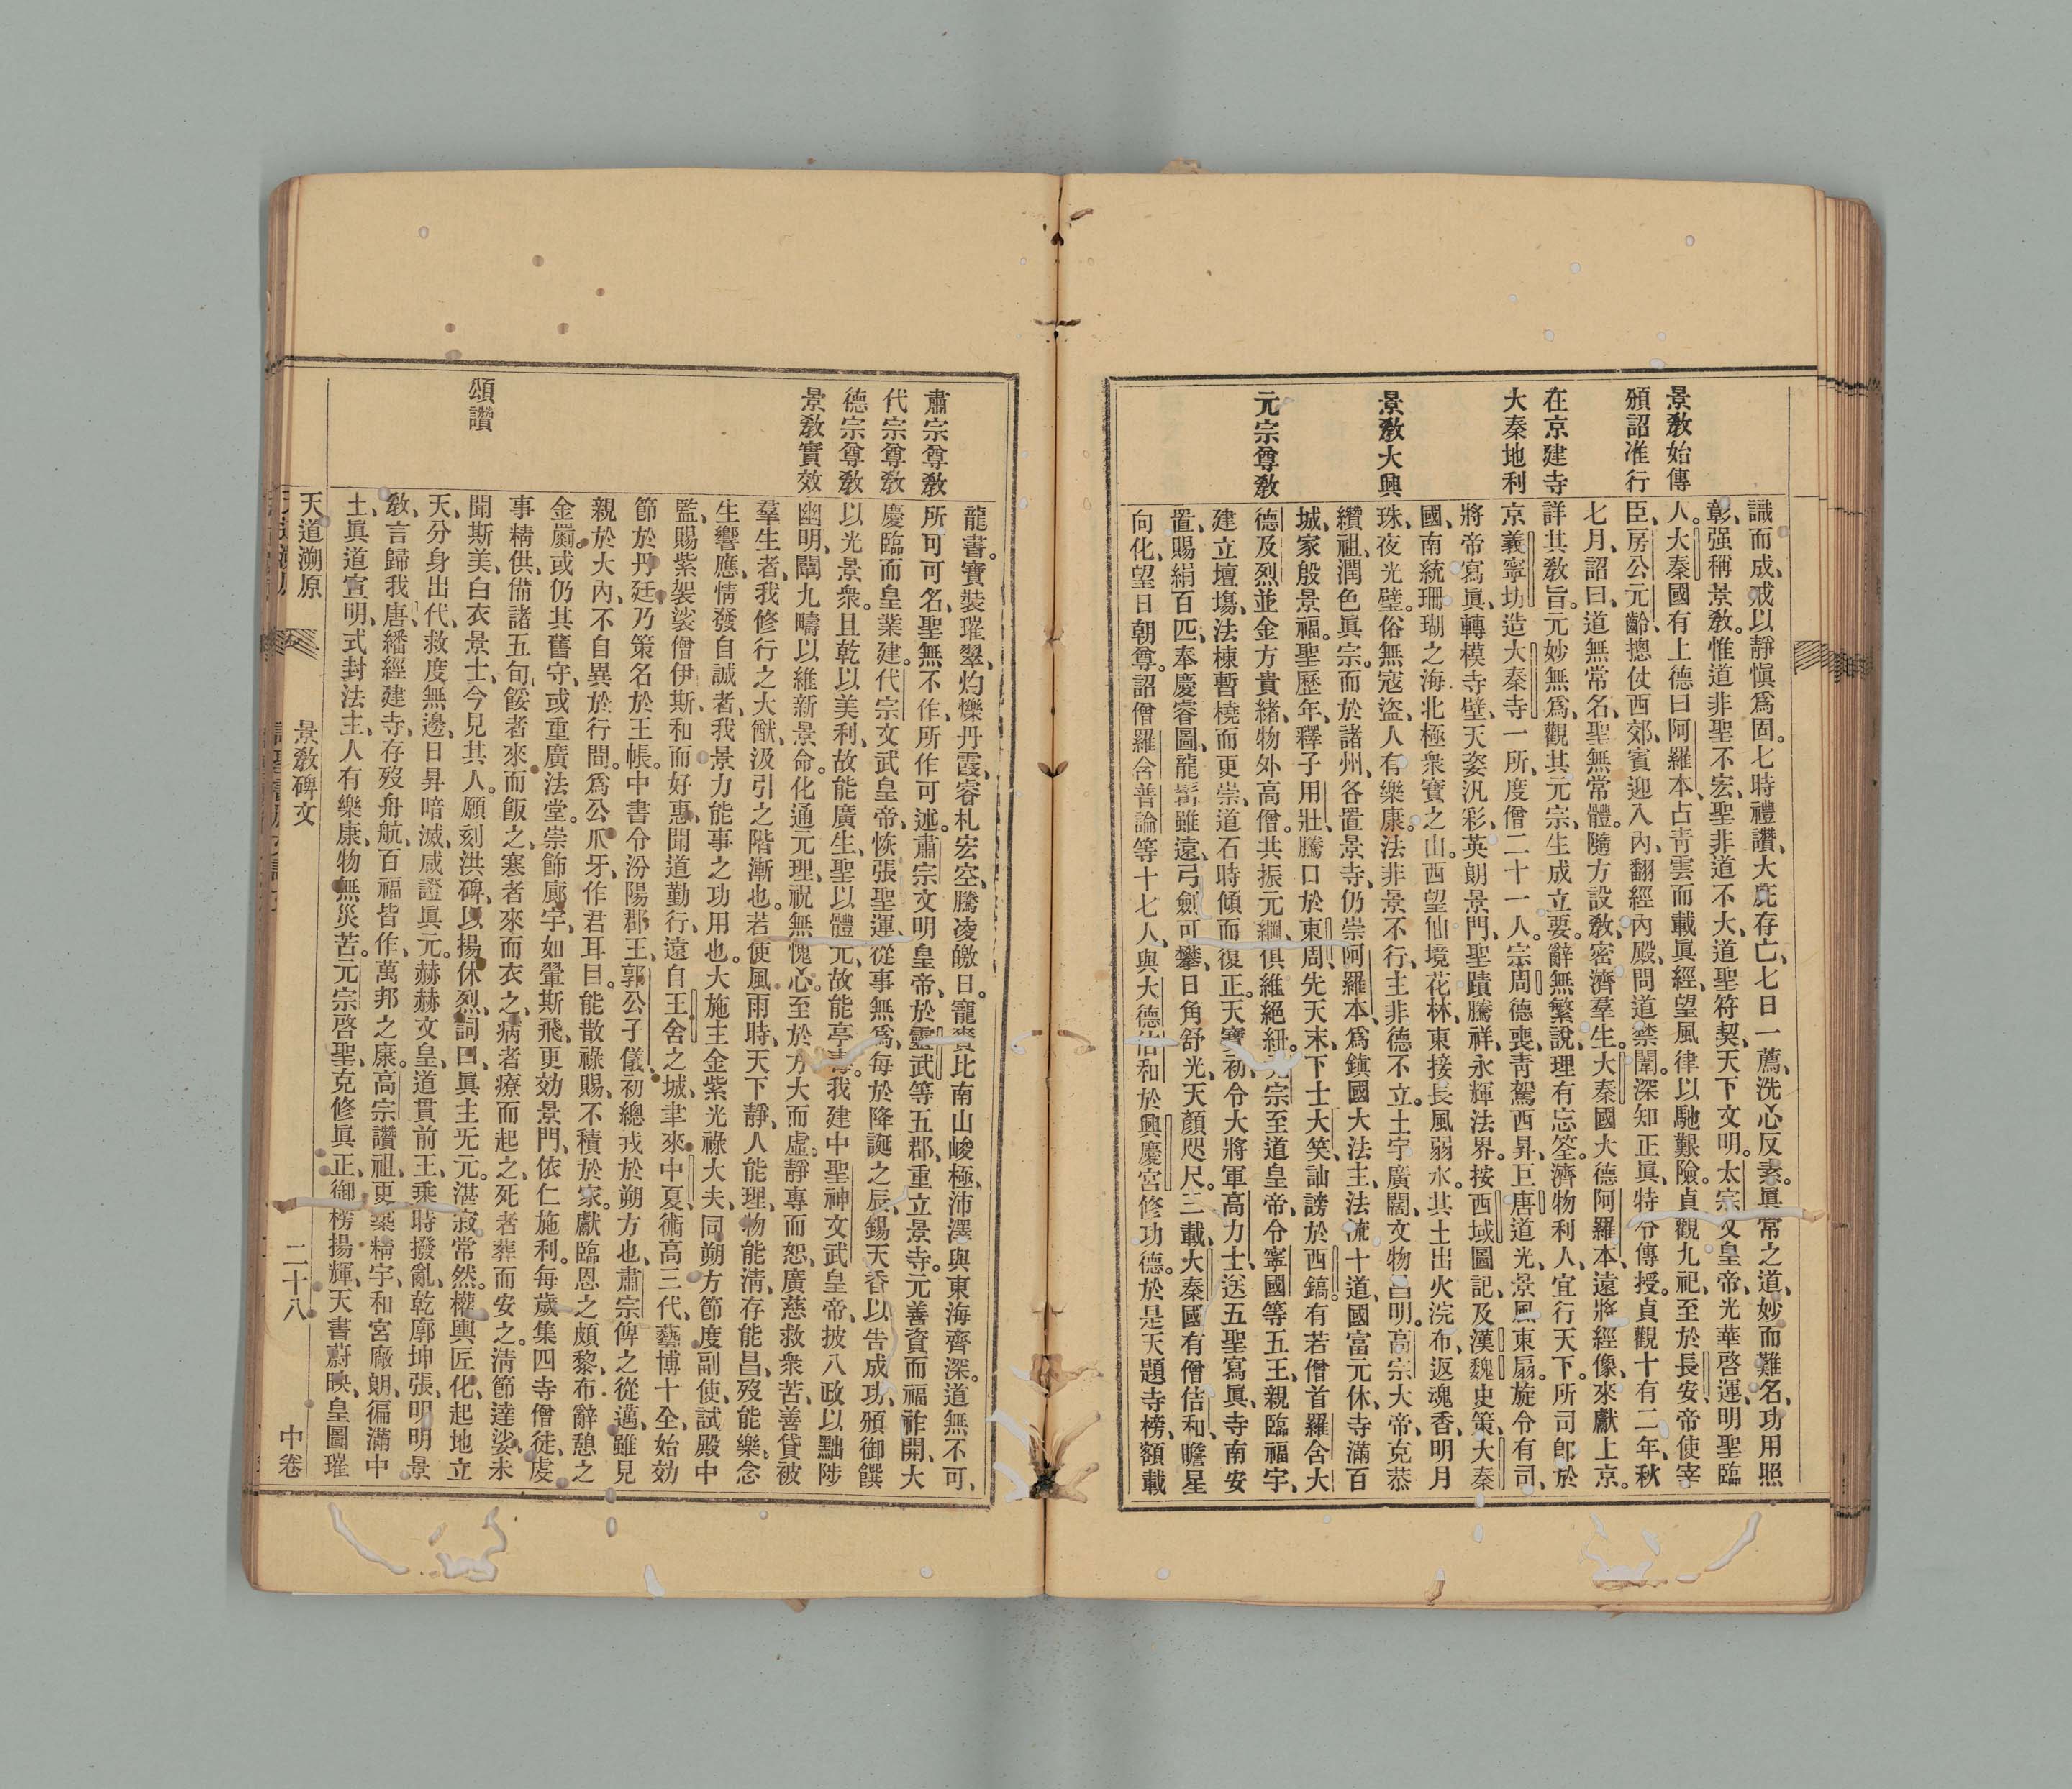 景敎始傳
頒詔准行
在京建寺
大秦地利
景敎大興
元宗尊敎
識而成、戒以靜愼爲固。七時禮讚、大庇存亡、七日一薦、洗心反素。眞常之道、妙而難名、功用照
彰、强稱景敎。惟道非聖不宏、聖非道不大、道聖符契、天下文明。太宗文皇帝、光華啓運、明聖臨
人。大秦國有上德曰阿羅本、占靑雲而載眞經、望風律以馳艱險。貞觀九祀、至於長安、帝使宰
臣、房公元齡、摠仗西郊、賓迎入內、翻經內殿、問道禁闈。深知正眞、特令傳授。貞觀十有二年、秋
七月、詔曰、道無常名、聖無常體。隨方設敎、密濟羣生。大秦國大德阿羅本、遠將經像、來獻上京。
詳其敎旨。元妙無爲、觀其元宗、生成立要。辭無繁說、理有忘筌。濟物利人、宜行天下。所司卽於
京義寧坊造大秦寺一所、度僧二十一人。宗周德喪、靑駕西昇、巨唐道光、景風東扇。旋令有司、
將帝寫眞、轉模寺壁、天姿汎彩、英朗景門、聖蹟騰祥、永輝法界。按西域圖記、及漢魏史策、大秦
國、南統珊瑚之海、北極衆寶之山。西望仙境花林、東接長風弱水。其土出火浣布、返魂香、明月
珠、夜光璧。俗無寇盜、人有樂康。法非景不行、主非德不立。土宇廣闊、文物昌明。高宗大帝、克恭
纘祖、潤色眞宗。而於諸州、各置景寺、仍崇阿羅本、爲鎭國大法主、法流十道、國富元休、寺滿百
城、家殷景福。聖歷年、釋子用壯、騰口於東周、先天末、下士大笑、訕謗於西鎬。有若僧首羅含、大
德及烈、並金方貴緖、物外高僧。共振元綱、俱維絕紐。元宗至道皇帝、令寧國等五王、親臨福宇、
建立壇塲、法棟暫橈而更崇、道石時傾而復正。天寶初、令大將軍高力士、送五聖寫眞、寺南安
置、賜絹百匹、奉慶睿圖、龍髯雖遠、弓劍可攀、日角舒光、天顏咫尺。三載、大秦國有僧佶和、瞻星
向化、望日朝尊。詔僧羅含普論等十七人、與大德佶和於興慶宮修功德。於是天題寺榜、額載
肅宗尊敎
代宗尊敎
德宗尊敎
景敎實效
頌讚
龍書。寶裝璀翠、灼爍丹霞、睿札宏空、騰凌皦日。寵賚比南山峻極、沛澤與東海齊深。道無不可、
所可可名、聖無不作、所作可述。肅宗文明皇帝、於靈武等五郡、重立景寺。元善資而福祚開、大
慶臨而皇業建。代宗文武皇帝、恢張聖運、從事無爲、每於降誕之辰、錫天香以告成功、頒御饌
以光景衆。且乾以美利、故能廣生、聖以體元、故能亭毒。我建中聖神文武皇帝、披八政以黜陟
幽明、闡九疇以維新景命。化通元理、祝無愧心。至於方大而虛。靜專而恕、廣慈救衆苦、善貸被
羣生者、我修行之大猷、汲引之階漸也。若使風雨時、天下靜、人能理、物能淸、存能昌、歿能樂。念
生響應、情發自誠者、我景力能事之功用也。大施主金紫光祿大夫、同朔方節度副使、試殿中
監、賜紫袈裟僧伊斯、和而好惠、聞道勤行、遠自王舍之城、聿來中夏、術高三代、藝博十全、始効
節於丹廷、乃策名於王帳。中書令汾陽郡王、郭公子儀、初總戎於朔方也、肅宗俾之從邁、雖見
親於大內、不自異於行間。爲公爪牙、作君耳目。能散祿賜、不積於家。獻臨恩之頗黎、布辭憩之
金罽。或仍其舊守、或重廣法堂。崇飾廊宇、如翬斯飛、更効景門、依仁施利。每歲集四寺僧徒、虔
事精供、備諸五旬、餒者來而飯之、寒者來而衣之、病者療而起之、死者葬而安之。淸節達娑、未
聞斯美、白衣景士、今見其人。願刻洪碑、以揚休烈、詞曰、眞主无元。湛寂常然。權輿匠化、起地立
天、分身出代、救度無邊、日昇暗滅、咸證眞元。赫赫文皇、道貫前王、乘時撥亂、乾廓坤張、明明景
敎、言歸我唐、繙經建寺、存歿舟航、百福皆作、萬邦之康。高宗讚祖、更築精宇、和宮敞朗、徧滿中
土、眞道宣明、式封法主、人有樂康、物無災苦。元宗啓聖、克修眞正、御榜揚輝、天書蔚映、皇圖璀
天道溯原　景敎碑文　二十八　中卷